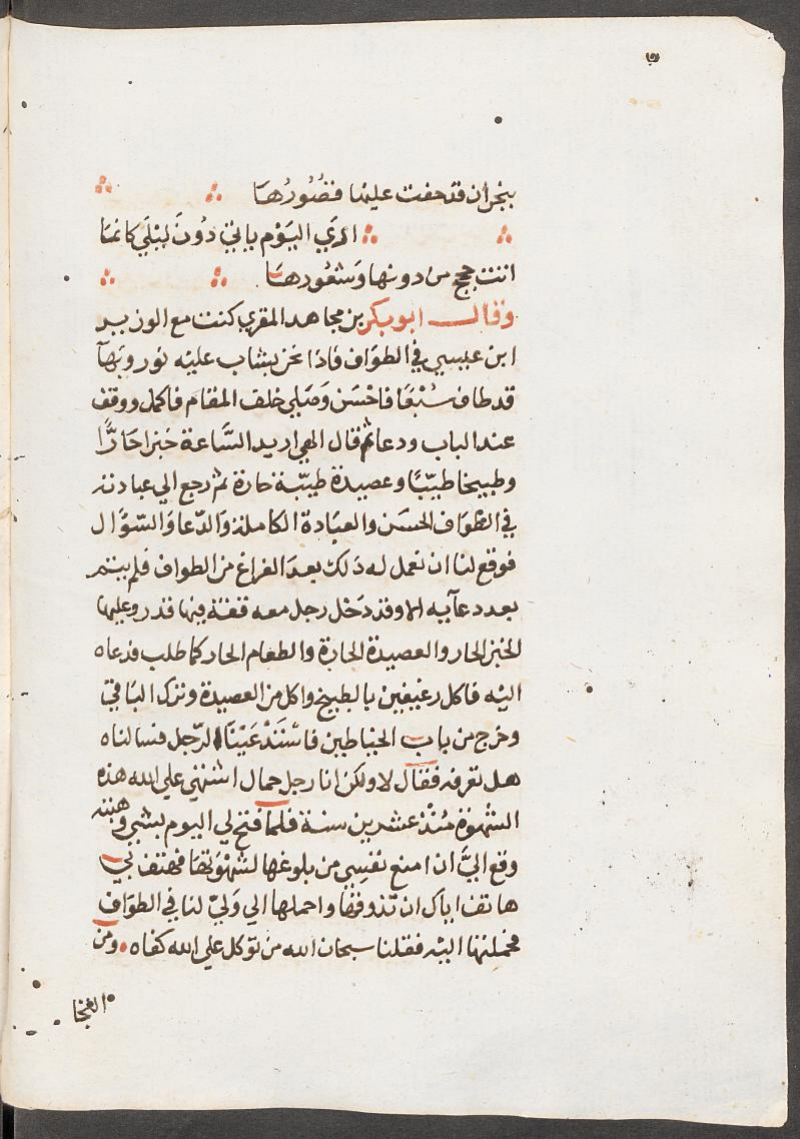 بنجران قد حفت علينا قصورها
الذي اليوم ياتي دون ليلي كانما
اتت حجج من دونها وشهورها
وقال ابو بكر بن مجاهد المقري كنت مع الوزير
ابن عيسي في الطواف فاذا نحن بشاب عليه نور وبهآ
قد طاف سُبْعًا فاحْسَن وَصَلي خلف المقام فاكمل ووقف
عند الباب ودعا ثم قال الهي اريد السَّاعة خبزا حارًّا
وطبيخا طيّبًا وعصيدة طيّبة حارة ثم رجع الي عبادته
في الطوَاف الحسَن والعبَادة الكاملة وَالدّعا وَالسّؤال
فوقع لنا ان نعمل له ذلك بعد الفراغ من الطواف فلم يتم
بعد دعآيه الا وقد دَخل رجل معه قفة فيها قدر وعليها
الخبز الحار والعصيدة الحارة والطعام الحار كما طلب فدعاه
اليْه فاكل رغيفين بالطبيخ واكل من العصيدة وترك البَاقي
وخرج من باب الحناطين فاسْتَدْعَيْنَا الرّجل فسالناه
هل تعرفه فقال لا ولكن انا رجل حمال اشتهي علي الله هذه
الشهْوَة مُنْذ عشرين سنة فلما فتح لي اليوم بشي وهيته
وقع اليَّ ان امنع نفسِي من بلوغها لشهْوَتهَا فهتف بي
هاتف اياك ان تذوقهَا واحملها الي وَليّ لنا في الطوَاف
فحملتها اليْه فقلنا سبحان الله من توكل علي الله كفاه ومن